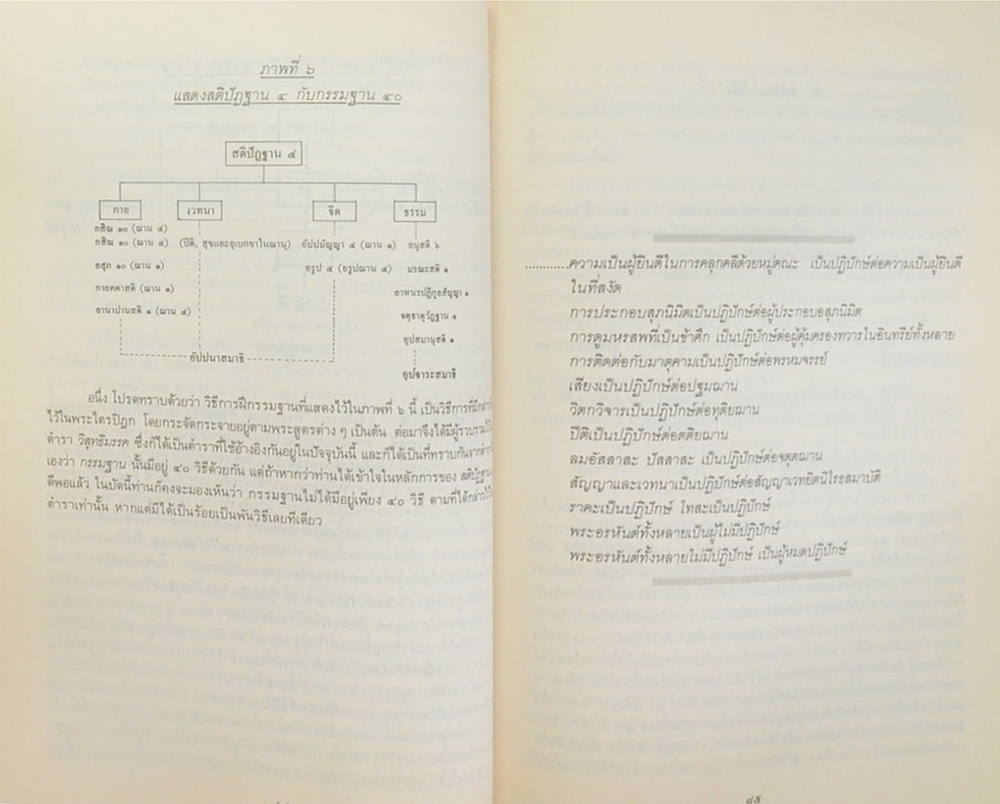 ภาพที่ ๖
แสดงสติปัฏฐาน ๔ กับกรรมฐาน ๔๐
สติปัฏฐาน ๔
กาย เวทนา จิต ธรรม
กสิณ ๑๐ (ฌาน ๔)
กสิณ ๑๐ (ฌาน ๔) (ปีติ, สุขและอุเบกขาในฌาน) อัปปมัญญา ๔ (ฌาน ๑) อนุสติ ๖
อสุภ ๑๐ (ฌาน ๑) อรูป ๔ (อรูปฌาน ๔) มรณะสติ ๑
กายคตาสติ (ฌาน ๑) อาหาเรปฏิกูลสัญญา ๑
อานาปานสติ ๑ (ฌาน ๔) จตุธาตุวัฏฐาน ๑
อุปสมานุสติ ๑
อัปปนาสมาธิ
อุปจาระสมาธิ
อนึ่ง โปรดทราบด้วยว่า วิธีการฝึกรรมฐานที่แสดงไว้ในภาพที่ ๖ นี้ เป็นวิธีการที่มี
ไว้ในพระไตรปิฎก โดยกระจัดกระจายอยู่ตามพระสูตรต่าง ๆ เป็นต้น ต่อมาจึงได้มีผู้รวบรวม
ตำรา วิสุทธิมรรค ซึ่งก็ได้เป็นตำราที่ใช้อ้างอิงกันอยู่ในปัจจุบันนี้ และก็ได้เป็นที่ทราบกันจาก
เองว่า กรรมฐาน นั้นมีอยู่ ๔๐ วิธีด้วยกัน แต่ถ้าหากว่าท่านได้เข้าใจในหลักการของ สติปัฏฐาน
ดีพอแล้ว ในบัดนี้ท่านก็คงจะมองเห็นว่า กรรมฐานไม่ได้มีอยู่เพียง ๔๐ วิธี ตามที่ได้กล่าวไว้
ตำราเท่านั้น หากแต่มีได้เป็นร้อยเป็นพันวิธีเลยทีเดียว
............ความเป็นผู้ยินดีในการคลุกคลีด้วยหมู่คณะ เป็นปฏิปักษ์ต่อความเป็นผู้ยินดี
ในที่สงัด
การประกอบสุภนิมิตเป็นปฏิปักษ์ต่อผู้ประกอบอสุภนิมิต
การดูมหรสพที่เป็นข้าศึก เป็นปฏิปักษ์ต่อผู้คุ้มครองทวารในอินทรีย์ทั้งหลาย
การติดต่อกับมาตุคามเป็นปฏิปักษ์ต่อพรหมจรรย์
เสียงเป็นปฏิปักษ์ต่อปฐมฌาน
วิตกวิจารเป็นปฏิปักษ์ต่อทุติยฌาน
ปีติเป็นปฏิปักษ์ต่อตติยฌาน
ลมอัสสาสะ ปัสสาสะ เป็นปฏิปักษ์ต่อจตุตฌาน
สัญญาและเวทนาเป็นปฏิปักษ์ต่อสัญญาเวทยิตนิโรธสมาบัติ
ราคะเป็นปฏิปักษ์ โทสะเป็นปฏิปักษ์
พระอรหันต์ทั้งหลายเป็นผู้ไม่มีปฏิปักษ์
พระอรหันต์ทั้งหลายไม่มีปฏิปักษ์ เป็นผู้หมดปฏิปักษ์
๘๕